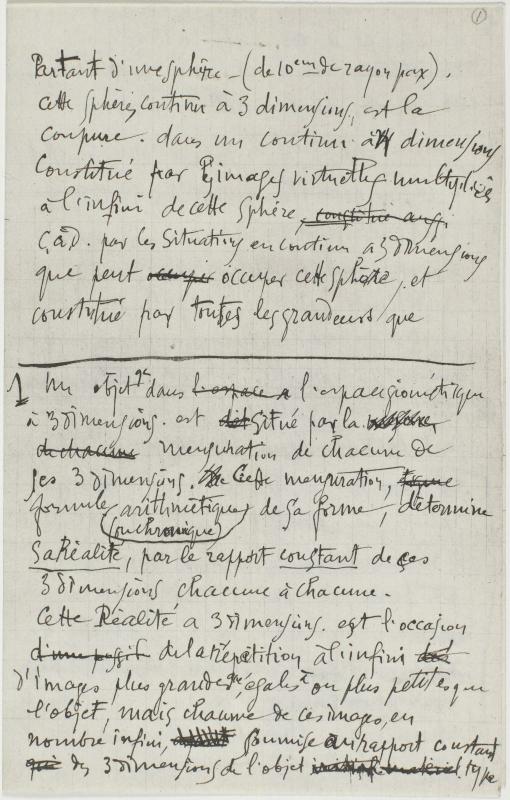 1
Partant d'une sphère - (de 10 cm de rayon par ex).
cette sphère, continu à 3 dimensions, est la
coupure. dans un continu à 4 dimensions
Constitué par images virtuelles multipliées
à l'infini de cette sphère, constitué aussi
c.à.d. par les situations en continu a 3 dimensions
que peut occuper occuper cette sphère, et
constitué par toutes les grandeurs que
1 Un objet dans l'espace l'espace géométrique
à 3 dimensions. est situé par la
de chacune mensuration de chacune de
ses 3 dimensions. Cette mensuration,
formule arithmétique de sa forme, détermine
(ou chronique)
sa Réalité, par le rapport constant de ces
3 dimensions chacune à chacune.
Cette Réalité a 3 dimensions. est l'occasion
de la répétition à l'infini
d'images plus grandes égales ou plus petites que
l'objet, mais chacune de ces images, en
nombre infini, soumise au rapport constant
des 3 dimensions de l'objet type